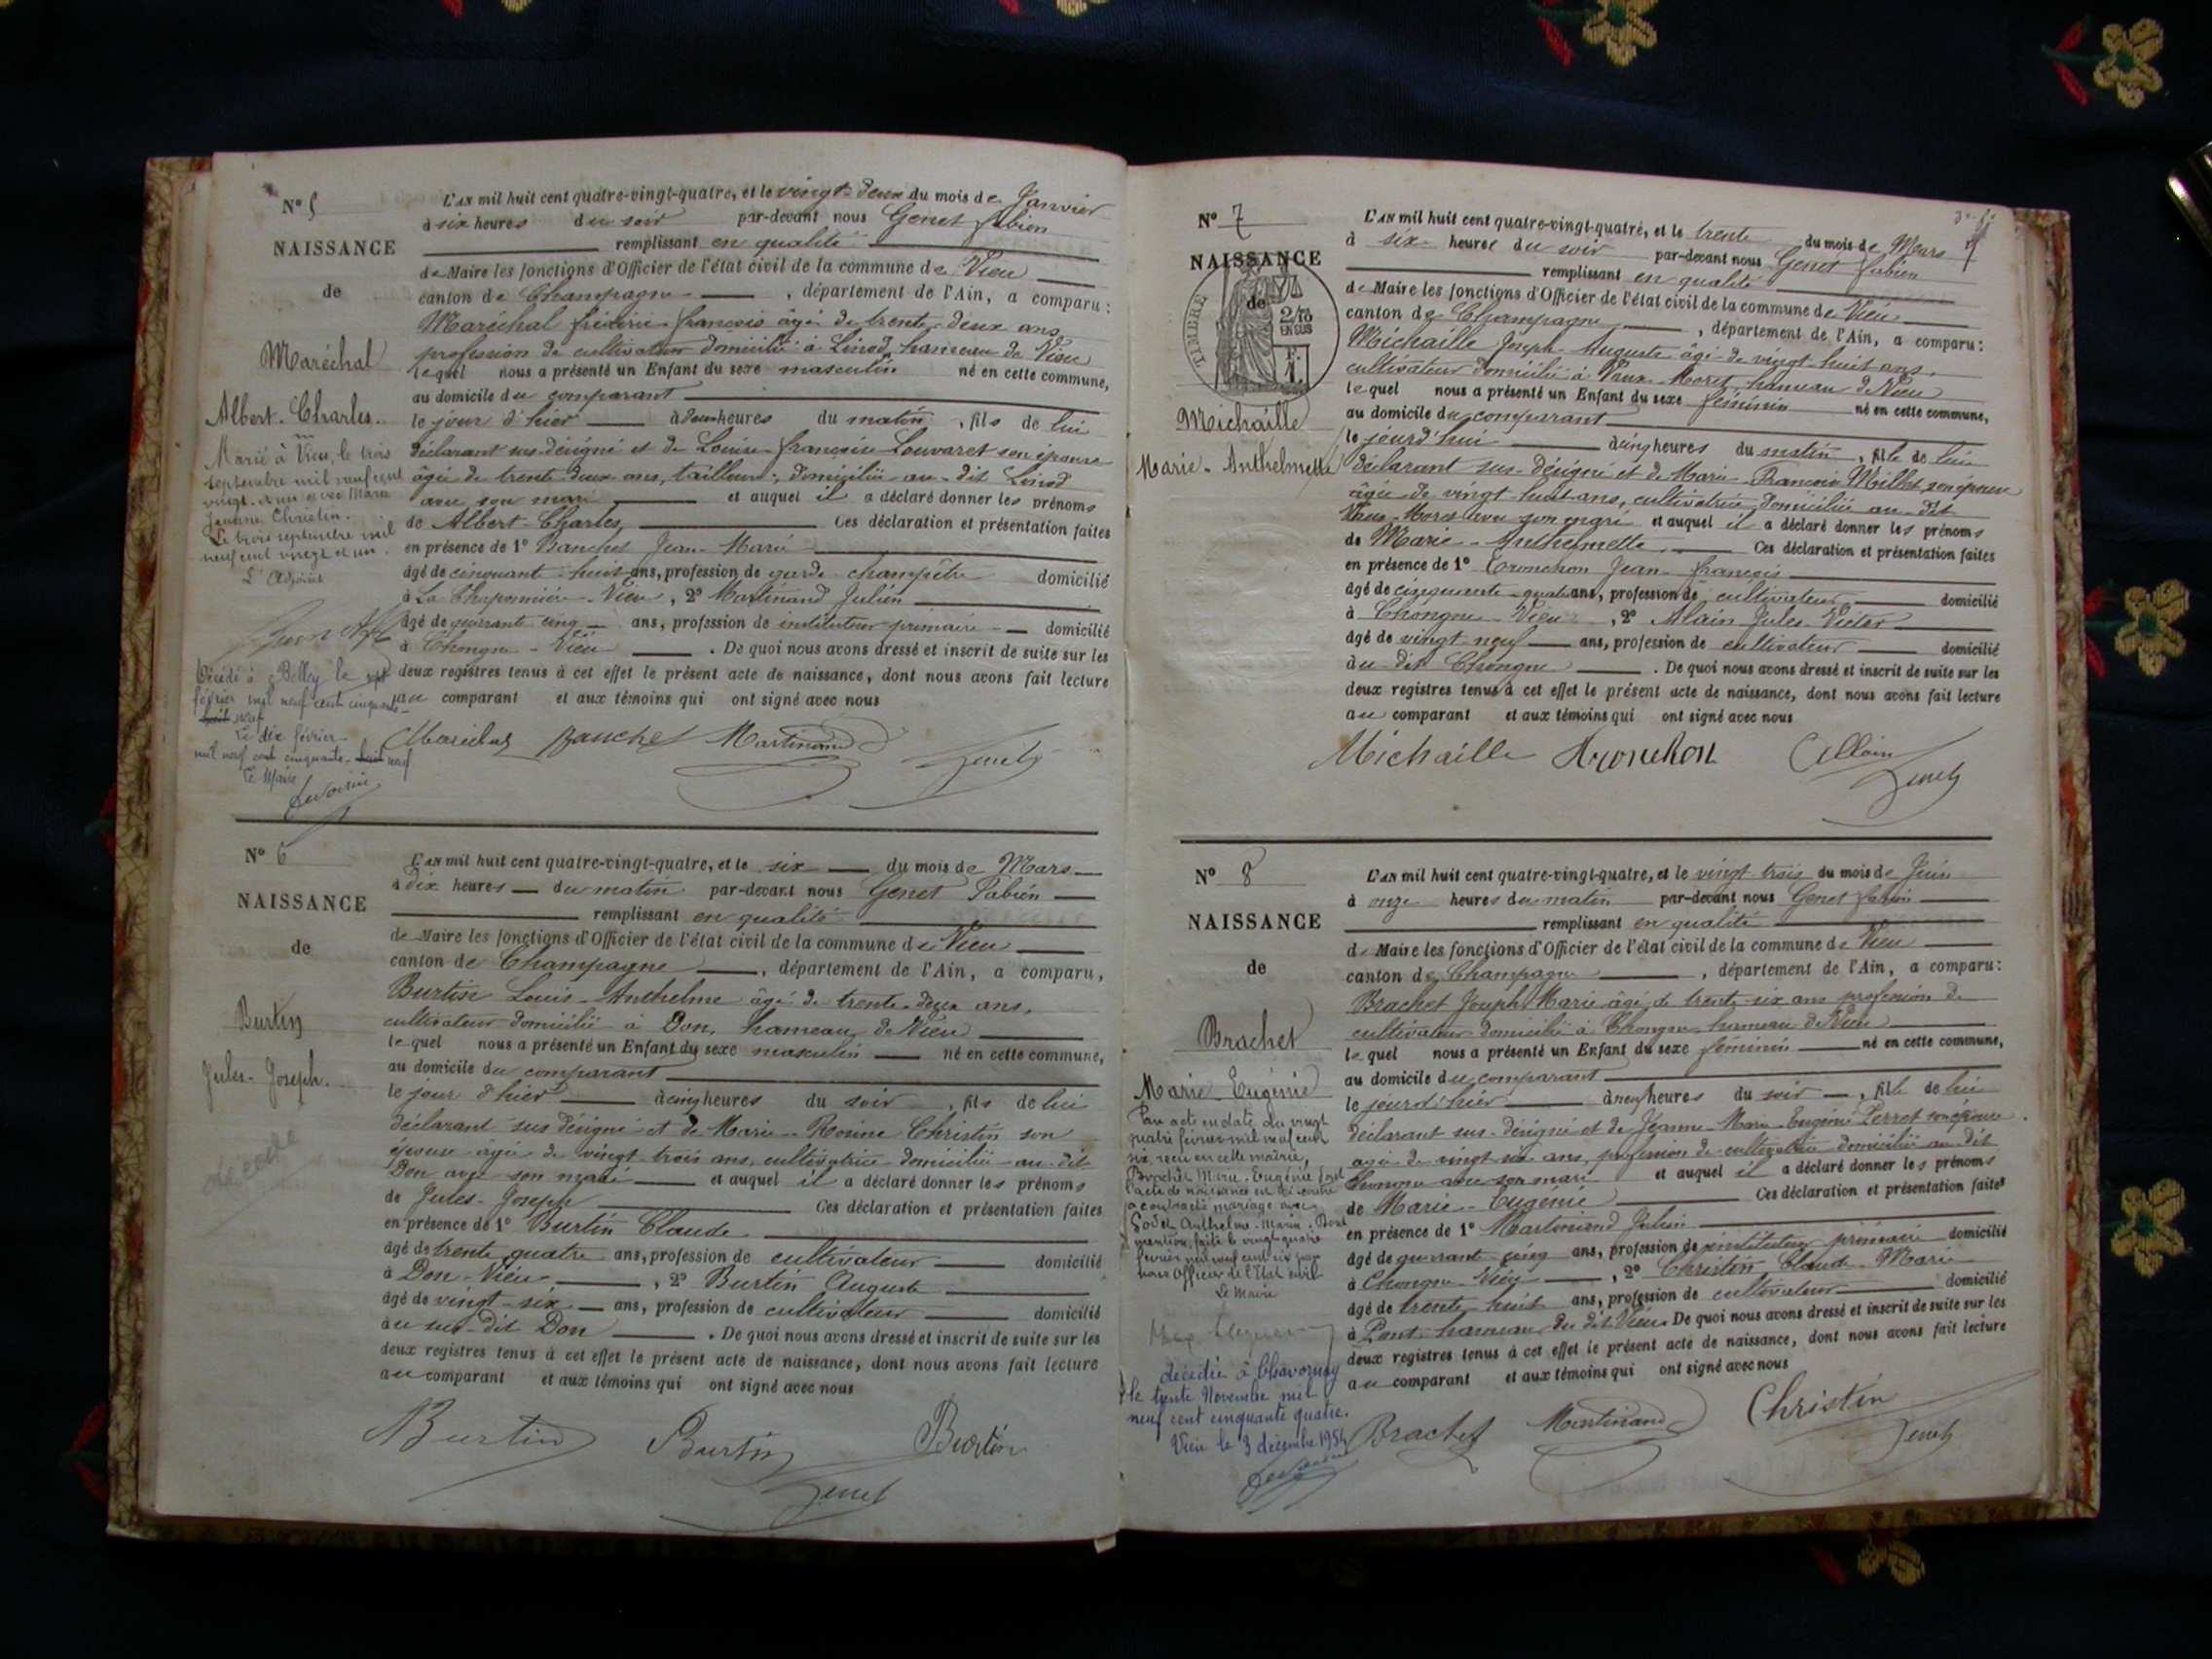 N° 5
NAISSANCE
de
Maréchal
Albert-Charles.
Marié à Vieu, le trois
septembre mil neuf cent
vingt-et-un avec Marie
Jeanne Christin.
Le trois septembre mil
neuf cent vingt et un.
L'Adjoint
Décédé à Belley le sept
février mil neuf cent cinquante-
huit neuf
Le dix février
mil neuf cent cinquante-huit neuf
Le Maire
L'AN mil huit cent quatre-vingt-quatre, et le vingt-deux du mois de Janvier
à six heures du soir par-devant nous Genet fabien
remplissant en qualité
de Maire les fonctions d'Officier de l'état civil de la commune de Vieu
canton de Champagne, département de l'Ain, a comparu:
Maréchal frédéric-françois âgé de trente-deux ans
profession de cultivateur domicilié à Linod, hameau de Vieu
lequel nous a présenté un Enfant du sexe masculin né en cette commune,
au domicile du comparant
le jour d'hier à deux heures du matin, fils de lui
déclarant sus-désigné et de Louise-françoise Louvaret son épouse
âgée de trente deux ans, tailleuse, domiciliée au-dit Linod
avec son mari et auquel il a déclaré donner les prénoms
de Albert-Charles, Ces déclaration et présentation faites
en présence de 1° Banchet Jean-Marie
âgé de cinquante-huit ans, profession de garde-champêtre domicilié
à La Chaponnière-Vieu, 2° Martinand Julien
âgé de quarante cinq ans, profession de instituteur primaire domicilié
à Chongne-Vieu. De quoi nous avons dressé et inscrit de suite sur les
deux registres tenus à cet effet le présent acte de naissance, dont nous avons fait lecture
au comparant et aux témoins qui ont signé avec nous
Maréchal Banchet Martinand Genet
N° 6
NAISSANCE
de
Burtin
Jules-Joseph.
décédé
L'AN mil huit cent quatre-vingt-quatre, et le six du mois de Mars
à dix heures du matin par-devant nous Genet Fabien
remplissant en qualité
de Maire les fonctions d'Officier de l'état civil de la commune de Vieu
canton de Champagne, département de l'Ain, a comparu,
Burtin Louis-Anthelme âgé de trente-deux ans,
cultivateur domicilié à Don, hameau de Vieu
lequel nous a présenté un Enfant du sexe masculin né en cette commune,
au domicile du comparant
le jour d'hier à cinq heures du soir, fils de lui
déclarant sus désigné et de Marie-Rosine Christin son
épouse âgée de vingt-trois ans, cultivatrice domiciliée au-dit
Don avec son mari et auquel il a déclaré donner les prénoms
de Jules-Joseph Ces déclaration et présentation faites
en présence de 1° Burtin Claude
âgé de trente quatre ans, profession de cultivateur domicilié
à Don-Vieu, 2° Burtin Auguste
âgé de vingt-six ans, profession de cultivateur domicilié
au sus-dit Don. De quoi nous avons dressé et inscrit de suite sur les
deux registres tenus à cet effet le présent acte de naissance, dont nous avons fait lecture
au comparant et aux témoins qui ont signé avec nous
Burtin Burtin Burtin
Genet
N° 7
NAISSANCE
de
TIMBRE
2/10
EN SUS
Michaille
Marie-Anthelmette
L'AN mil huit cent quatre-vingt-quatre, et le trente du mois de Mars
à six heures du soir par-devant nous Genet fabien
remplissant en qualité
de Maire les fonctions d'Officier de l'état civil de la commune de Vieu
canton de Champagne, département de l'Ain, a comparu:
Michaille Joseph-Auguste âgé de vingt-huit ans,
cultivateur domicilié à Vaux-Moret, hameau de Vieu
lequel nous a présenté un Enfant du sexe féminin né en cette commune,
au domicile du comparant
le jourd'hui à cinq heures du matin, fille de lui
déclarant sus-désigné et de Marie-Françoise Millet son épouse
âgée de vingt-huit ans, cultivatrice domiciliée au-dit
Vaux-Moret avec son mari et auquel il a déclaré donner les prénoms
de Marie-Anthelmette. Ces déclaration et présentation faites
en présence de 1° Tronchon Jean-françois
âgé de cinquante-quatre ans, profession de cultivateur domicilié
à Chongne-Vieu, 2° Alain Jules-Victor
âgé de vingt neuf ans, profession de cultivateur domicilié
au-dit Chongne. De quoi nous avons dressé et inscrit de suite sur les
deux registres tenus à cet effet le présent acte de naissance, dont nous avons fait lecture
au comparant et aux témoins qui ont signé avec nous
Michaille Tronchon Allain
Genet
N° 8
NAISSANCE
de
Brachet
Marie-Eugénie
Par acte en date du vingt
quatre février mil neuf cent
six, reçu en cette mairie,
Brachet Marie-Eugénie dont
l'acte de naissance est ci-contre
a contracté mariage avec
Godet Anthelme-Marie. Dont
mention faite le vingt-quatre
février mil neuf cent six par
nous Officier de l'Etat civil
Le Maire
décédée à Chavornay
le trente Novembre mil
neuf cent cinquante quatre.
Vieu le 3 décembre 1954
L'AN mil huit cent quatre-vingt-quatre, et le vingt trois du mois de Juin
à onze heures du matin par-devant nous Genet fabien
remplissant en qualité
de Maire les fonctions d'Officier de l'état civil de la commune de Vieu
canton de Champagne, département de l'Ain, a comparu:
Brachet Joseph Marie âgé de trente-six ans profession de
cultivateur domicilié à Chongne hameau de Vieu
lequel nous a présenté un Enfant du sexe féminin né en cette commune,
au domicile du comparant
le jour d'hier à neuf heures du soir, fille de lui
déclarant sus-désigné et de Jeanne-Marie-Eugénie Perret son épouse
âgée de vingt six ans, profession de cultivatrice domiciliée au-dit
Chongne avec son mari et auquel il a déclaré donner les prénoms
de Marie-Eugénie Ces déclaration et présentation faites
en présence de 1° Martinand Julien
âgé de quarante-cinq ans, profession de instituteur primaire domicilié
à Chongne Vieu, 2° Christin Claude-Marie
âgé de trente-huit ans, profession de cultivateur domicilié
à Pont, hameau du dit Vieu. De quoi nous avons dressé et inscrit de suite sur les
deux registres tenus à cet effet le présent acte de naissance, dont nous avons fait lecture
au comparant et aux témoins qui ont signé avec nous
Brachet Martinand Christin
Genet